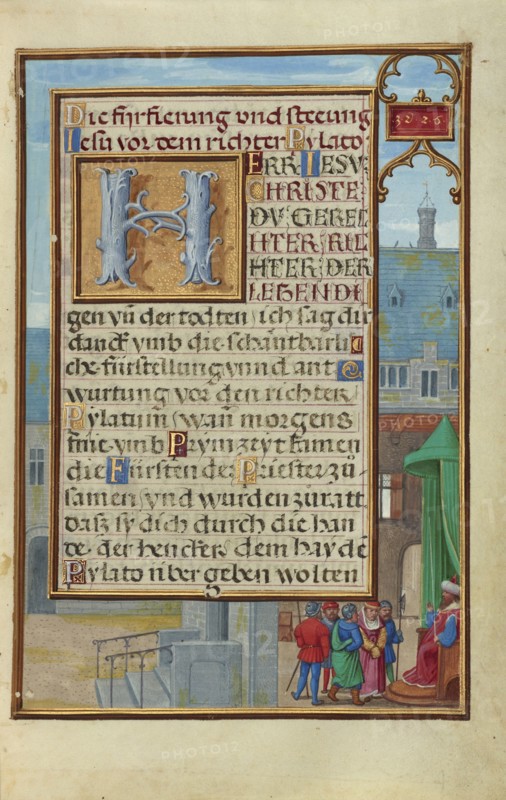 Die fürfierung vnd stellung
Iesu vor dem richter Pylato
HERR IESV
CHRISTE
DV GEREC
HTER RIC
HTER DER
LEBENDI
gen vn̄ der todten / ich sag dir
danck vmb die schantbarli
che fürstellung vnnd ant
wurtung vor den richter
Pylatum / wan̄ morgens
frue vmb Prym zeyt kamen
die Fürsten der Priester zů
samen / vnd wurden zu ratt
dasz sy dich durch die han
de der hencker dem hayde
Pylato übergeben wolten